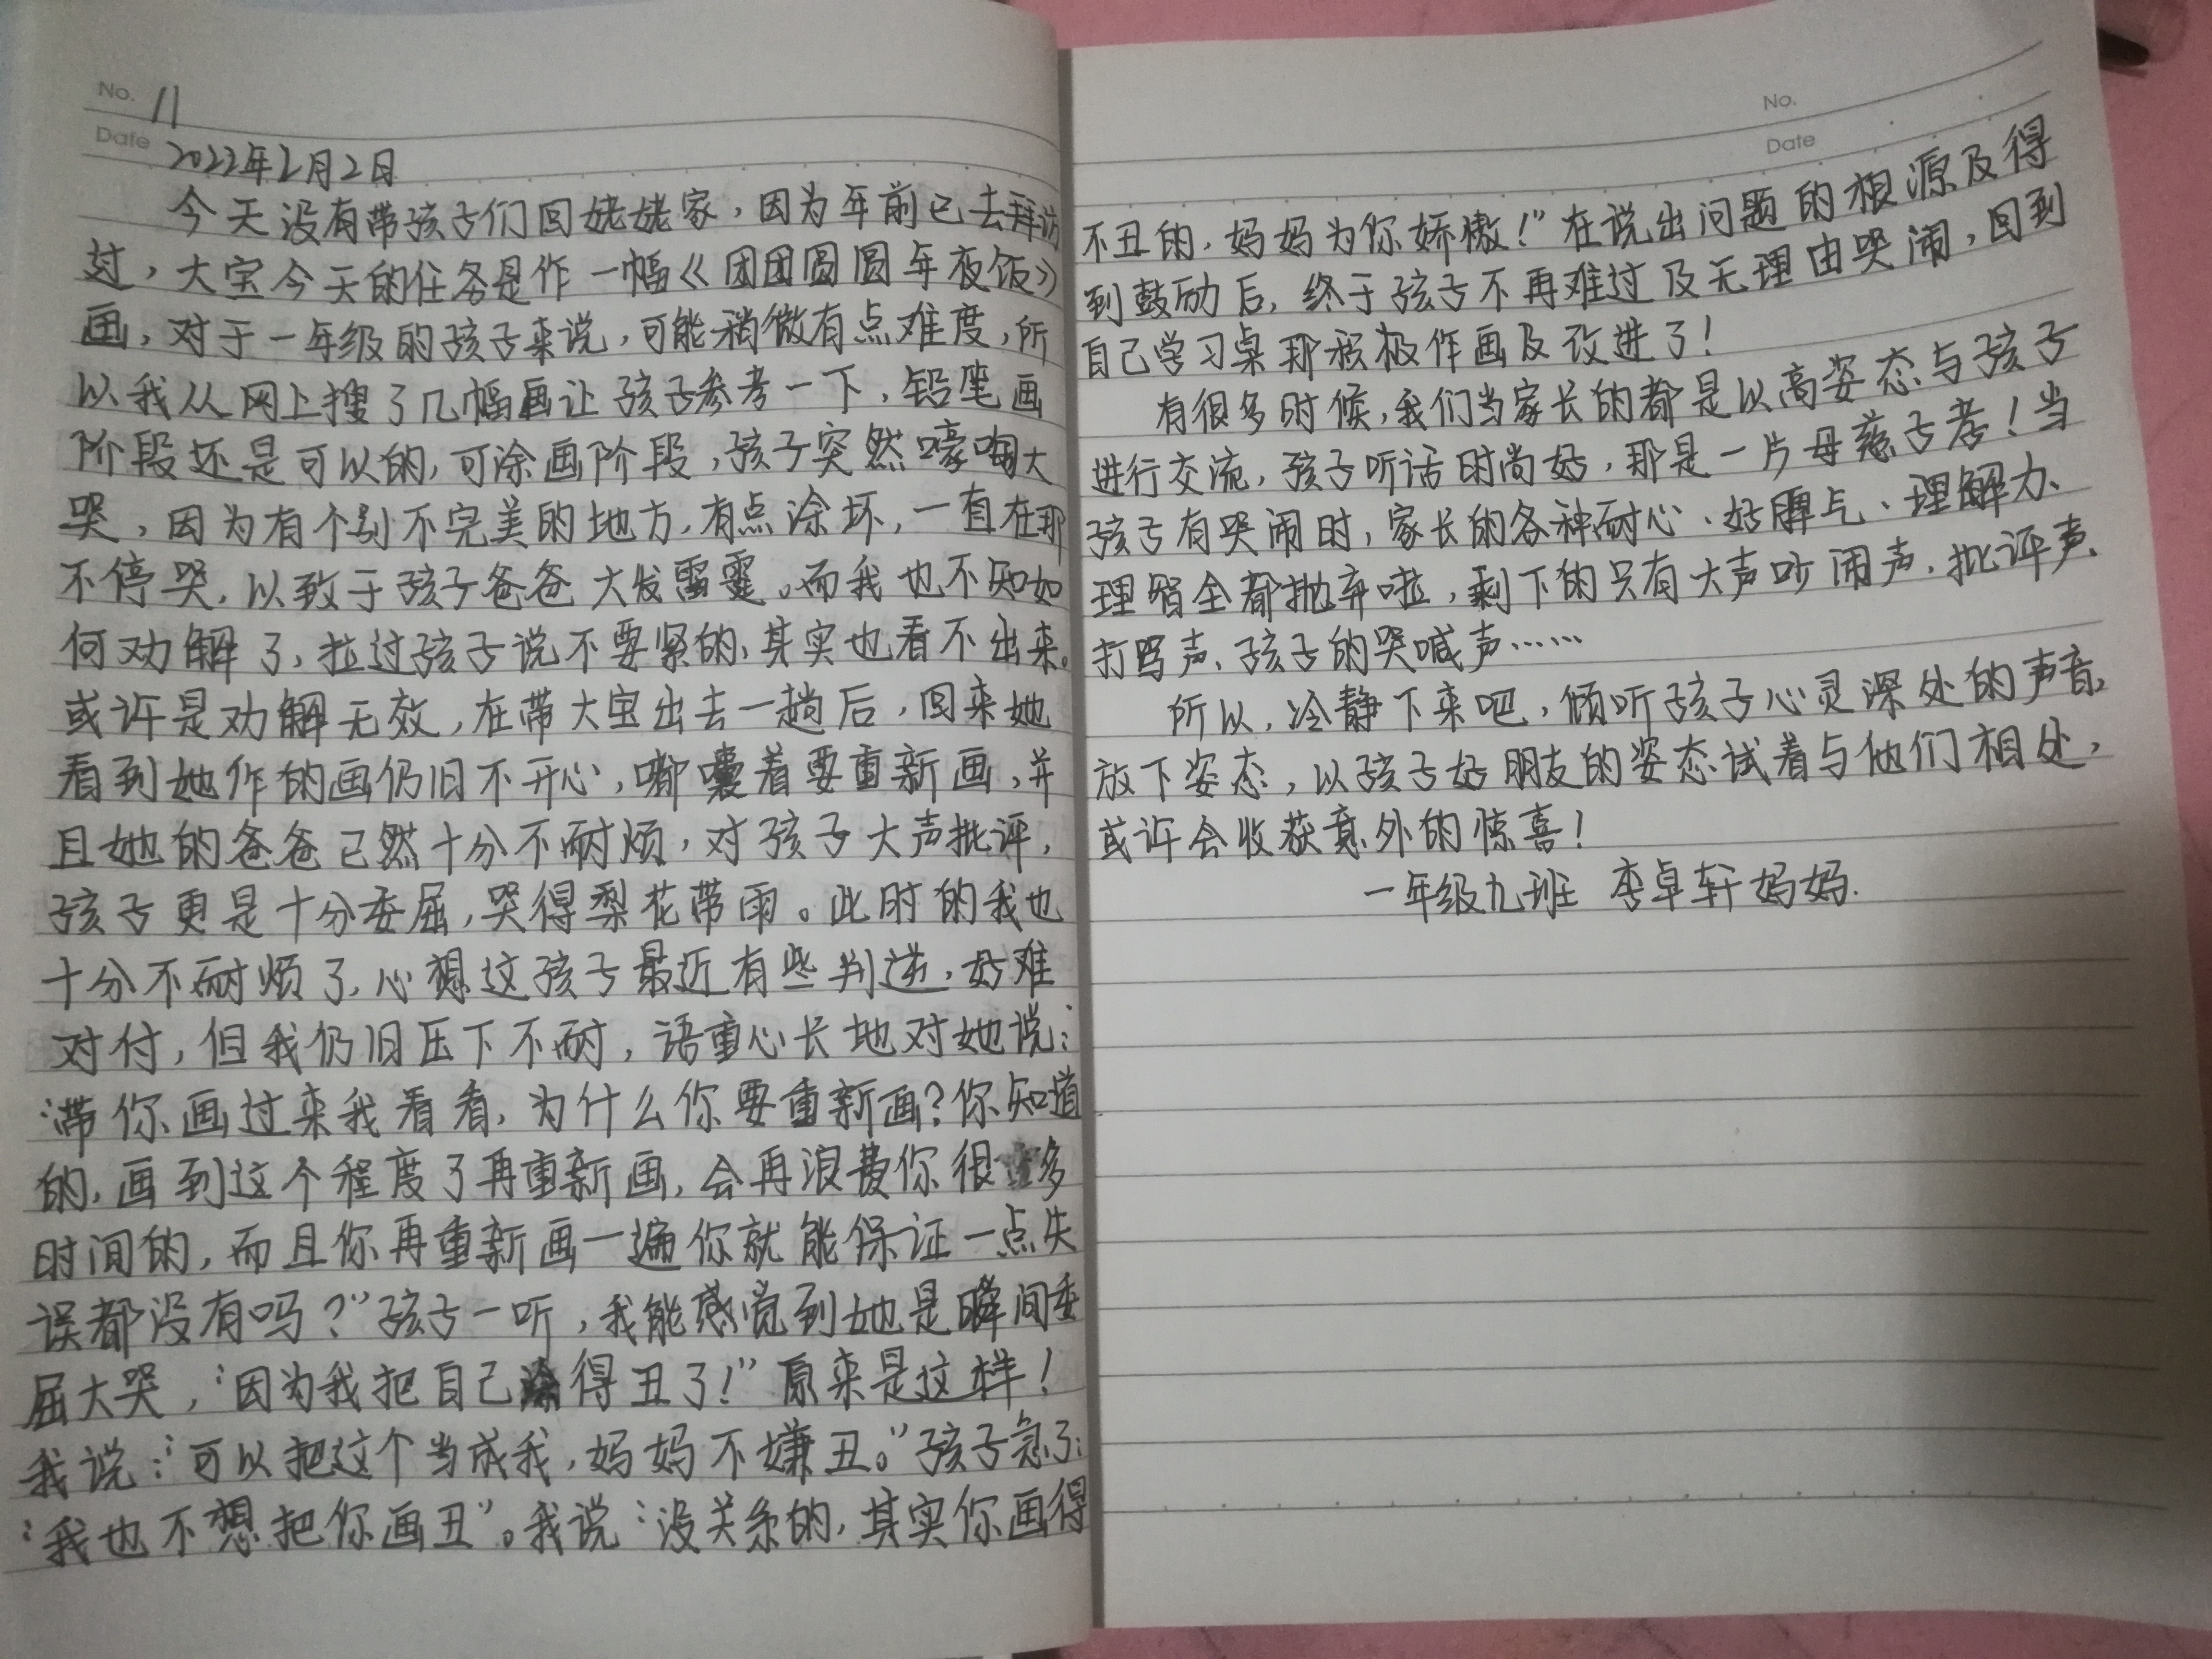 No. 11
Date 2022年2月2日
今天没有带孩子们回姥姥家，因为年前已去拜访
过，大宝今天的任务是作一幅《团团圆圆年夜饭》
画，对于一年级的孩子来说，可能稍微有点难度，所
以我从网上搜了几幅画让孩子参考一下，铅笔画
阶段还是可以的，可涂画阶段，孩子突然嚎啕大
哭，因为有个别不完美的地方，有点涂坏，一直在那
不停哭，以致于孩子爸爸大发雷霆。而我也不知如
何劝解了，拉过孩子说不要紧的，其实也看不出来。
或许是劝解无效，在带大宝出去一趟后，回来她
看到她作的画仍旧不开心，嘟囔着要重新画，并
且她的爸爸已然十分不耐烦，对孩子大声批评，
孩子更是十分委屈，哭得梨花带雨。此时的我也
十分不耐烦了，心想这孩子最近有些判逆，好难
对付，但我仍旧压下不耐，语重心长地对她说：
“带你画过来我看看，为什么你要重新画？你知道
的，画到这个程度了再重新画，会再浪费你很多
时间的，而且你再重新画一遍你就能保证一点失
误都没有吗？”孩子一听，我能感觉到她是瞬间委
屈大哭，“因为我把自己涂得丑了！”原来是这样！
我说：“可以把这个当成我，妈妈不嫌丑。”孩子急了：
“我也不想把你画丑”。我说“没关系的，其实你画得
No.
Date
不丑的，妈妈为你娇傲！”在说出问题的根源及得
到鼓励后，终于孩子不再难过及无理由哭闹，回到
自己学习桌那积极作画及改进了！
有很多时候，我们当家长的都是以高姿态与孩子
进行交流，孩子听话时尚好，那是一片母慈子孝！当
孩子有哭闹时，家长的各种耐心、好脾气、理解力、
理智全都抛弃啦，剩下的只有大声吵闹声，批评声、
打骂声、孩子的哭喊声……
所以，冷静下来吧，倾听孩子心灵深处的声音，
放下姿态，以孩子好朋友的姿态试着与他们相处，
或许会收获意外的惊喜！
一年级九班 李卓轩妈妈.